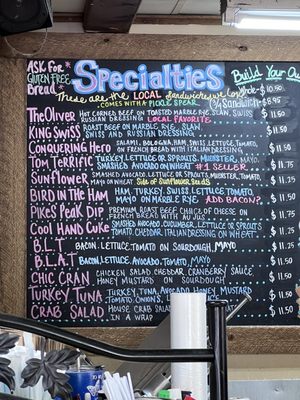 Ask For
Gluten Free
Bread
Specialties
These are the LOCAL Sandwiches we
COMES WITH A PICKLE SPEAR
Build Your O
$10.50
1/2 Sandwich $8.95
The Oliver HOT CORNED BEEF ON TOASTED MARBLE RYE, SLAW, SWISS
AND RUSSIAN DRESSING LOCAL FAVORITE $11.50
KING SWISS ROAST BEEF ON MARBLE RYE, SLAW,
SWISS AND RUSSIAN DRESSING $11.50
CONQUERING Hero SALAMI, BOLOGNA, HAM, SWISS, LETTUCE, TOMATO,
ON FRENCH BREAD WITH ITALIAN DRESSING $11.50
TOM TERRIFIC TURKEY LETTUCE OR SPROUTS, MUENSTER, MAYO,
SMASHED AVOCADO ON WHEAT #1 SELLER $11.75
SUNFLOWER SMASHED AVOCADO, LETTUCE OR SPROUTS, MUENSTER, TOMATO,
MAYO ON WHEAT Side of Sunflower Seeds $11.25
BIRD IN THE HAM HAM, TURKEY, SWISS, LETTUCE, TOMATO,
MAYO ON MARBLE RYE ADD BACON? $11.75
PIKES PEAK DIP PREMIUM ROAST BEEF CHOICE OF CHEESE ON
FRENCH BREAD WITH AU JUS $11.50
COOL HAND CUKE SMASHED AVOCADO, CUCUMBER, LETTUCE OR SPROUTS
TOMATO, CHEDDAR, ITALIAN DRESSING ON WHEAT $11.25
B.L.T BACON, LETTUCE, TOMATO ON SOURDOUGH, MAYO $11.25
B.L.A.T BACON, LETTUCE, AVOCADO, TOMATO, MAYO
CHIC CRAN CHICKEN SALAD CHEDDAR, CRANBERRY SAUCE,
HONEY MUSTARD ON SOURDOUGH
TURKEY TUNA TURKEY, TUNA, AVOCADO, HONEY MUSTARD
TOMATO, ONIONS
CRAB SALAD HOUSE CRAB
IN A WRAP $11.50